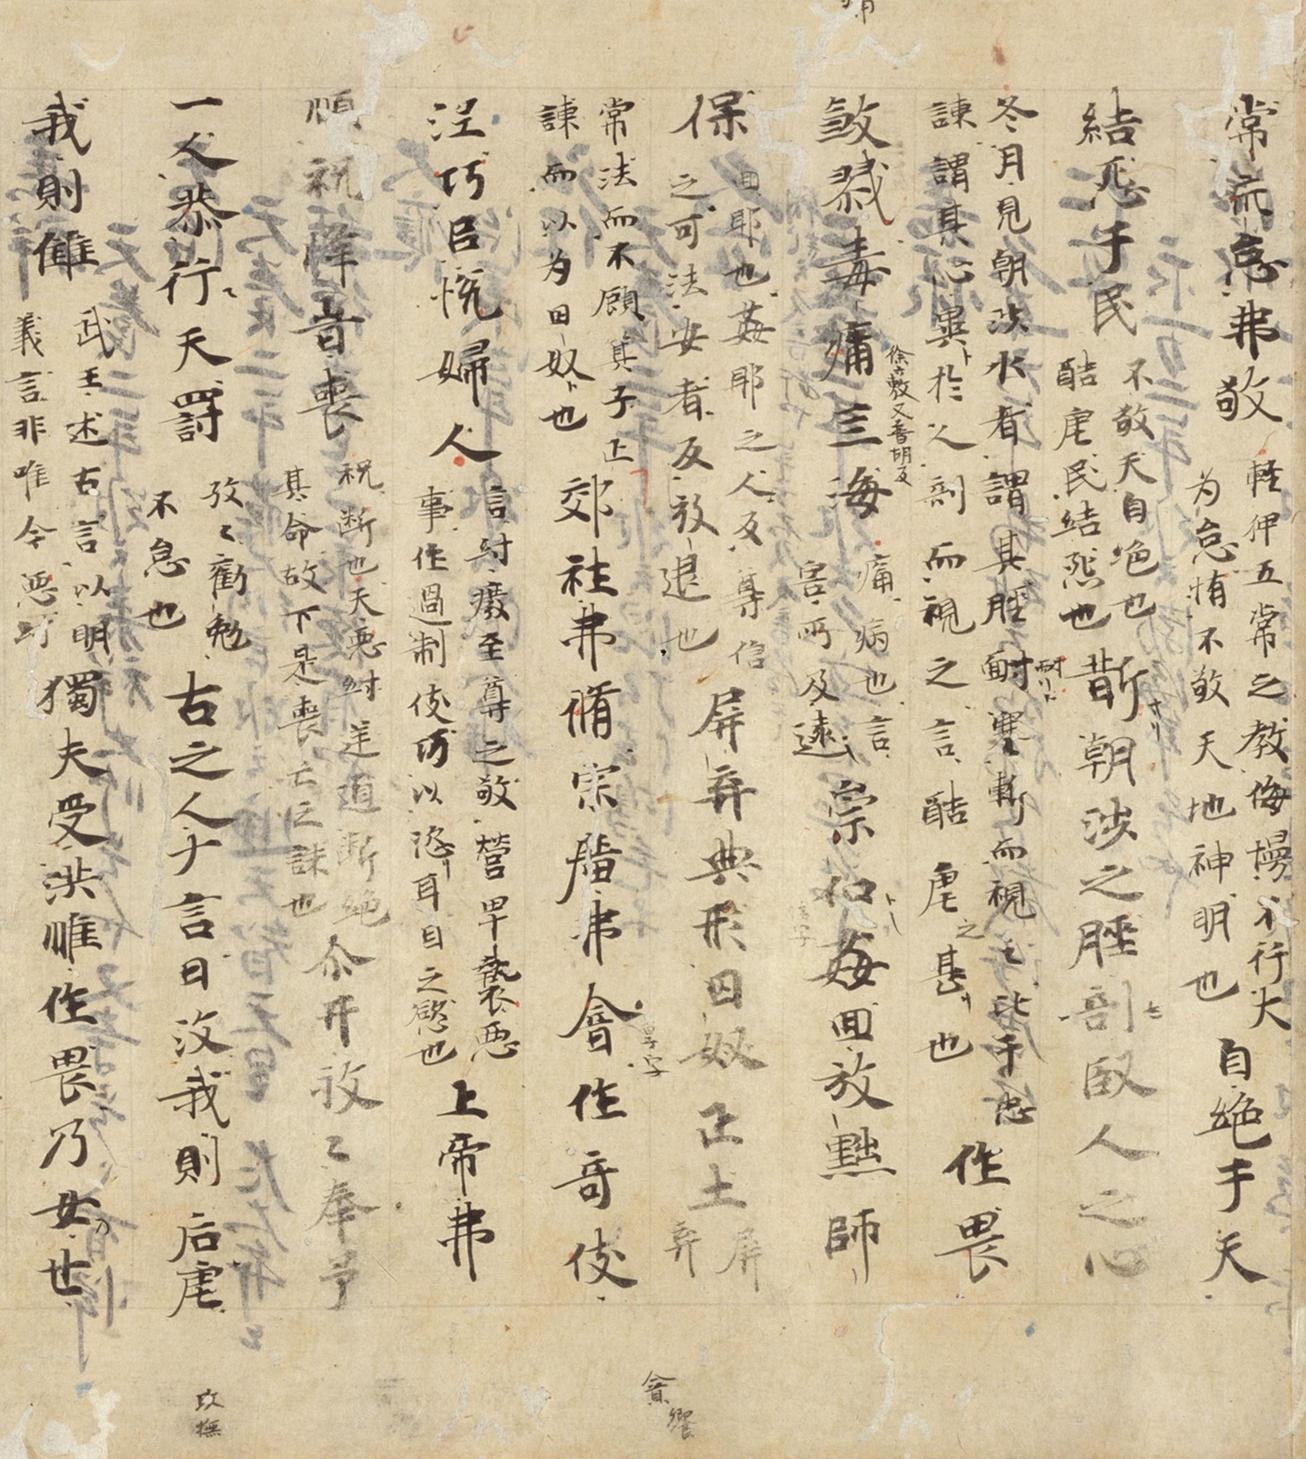 常而怠弗敬 輕狎五常之教侮慢不行大
為怠惰不敬天地神明也 自絶于天
結怨于民 不敬天自絶也
酷虐民結怨也 斮朝涉之脛剖臤人之心
冬月見朝涉水者謂其脛耐寒斬而視之比干忠
諫謂其心異於人剖而視之言酷虐之甚也 作畏
敘弑毒痡三海 痡病也言
害所及遠 崇仁姦回放黜師
保 回耶也姦耶之人反尊信
之可法安者反放退也 屏弃典形囚奴正士 屏
弃
常法而不顧箕子正
諫而以為囚奴也 郊社弗脩宗庿弗會作奇伎
淫巧以悅婦人 言紂廢至尊之敬營卑䙝惡
事作過制伎巧以恣耳目之慾也 上帝弗
順祝降音喪 祝断也天惡紂逆道断絶
其命故下是喪亡之誅也 尒幵孜〻奉予
一人恭行天罸 孜〻勸勉
不怠也 古之人ナ言曰汝我則后虐
我則讎 武王述古言以明
義言非唯今惡紂 獨夫受洪惟作畏乃女世